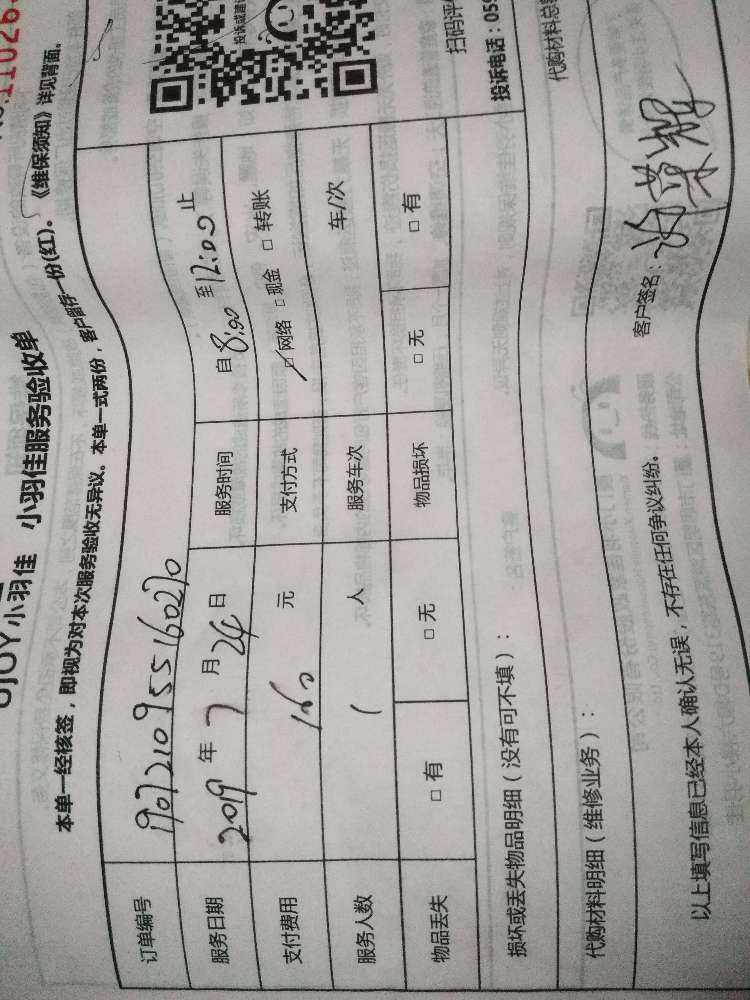 小羽佳 小羽佳服务验收单
本单一经核签，即视为对本次服务验收无异议。本单一式两份，客户留存一份(红)。《维保须知》详见背面。
订单编号 190721095516020
服务日期 2019 年 7 月 24 日 服务时间 自 8:00 至 12:00 止
支付费用 160 元 支付方式 网络 □ 现金 □ 转账
服务人数 1 人 服务车次 车/次
物品丢失 □ 有 □ 无 物品损坏 □ 无 □ 有
损坏或丢失物品明细（没有可不填）：
代购材料明细（维修业务）：
代购材料总
以上填写信息已经本人确认无误，不存在任何争议纠纷。
客户签名：
投诉或建
扫码评
投诉电话：059